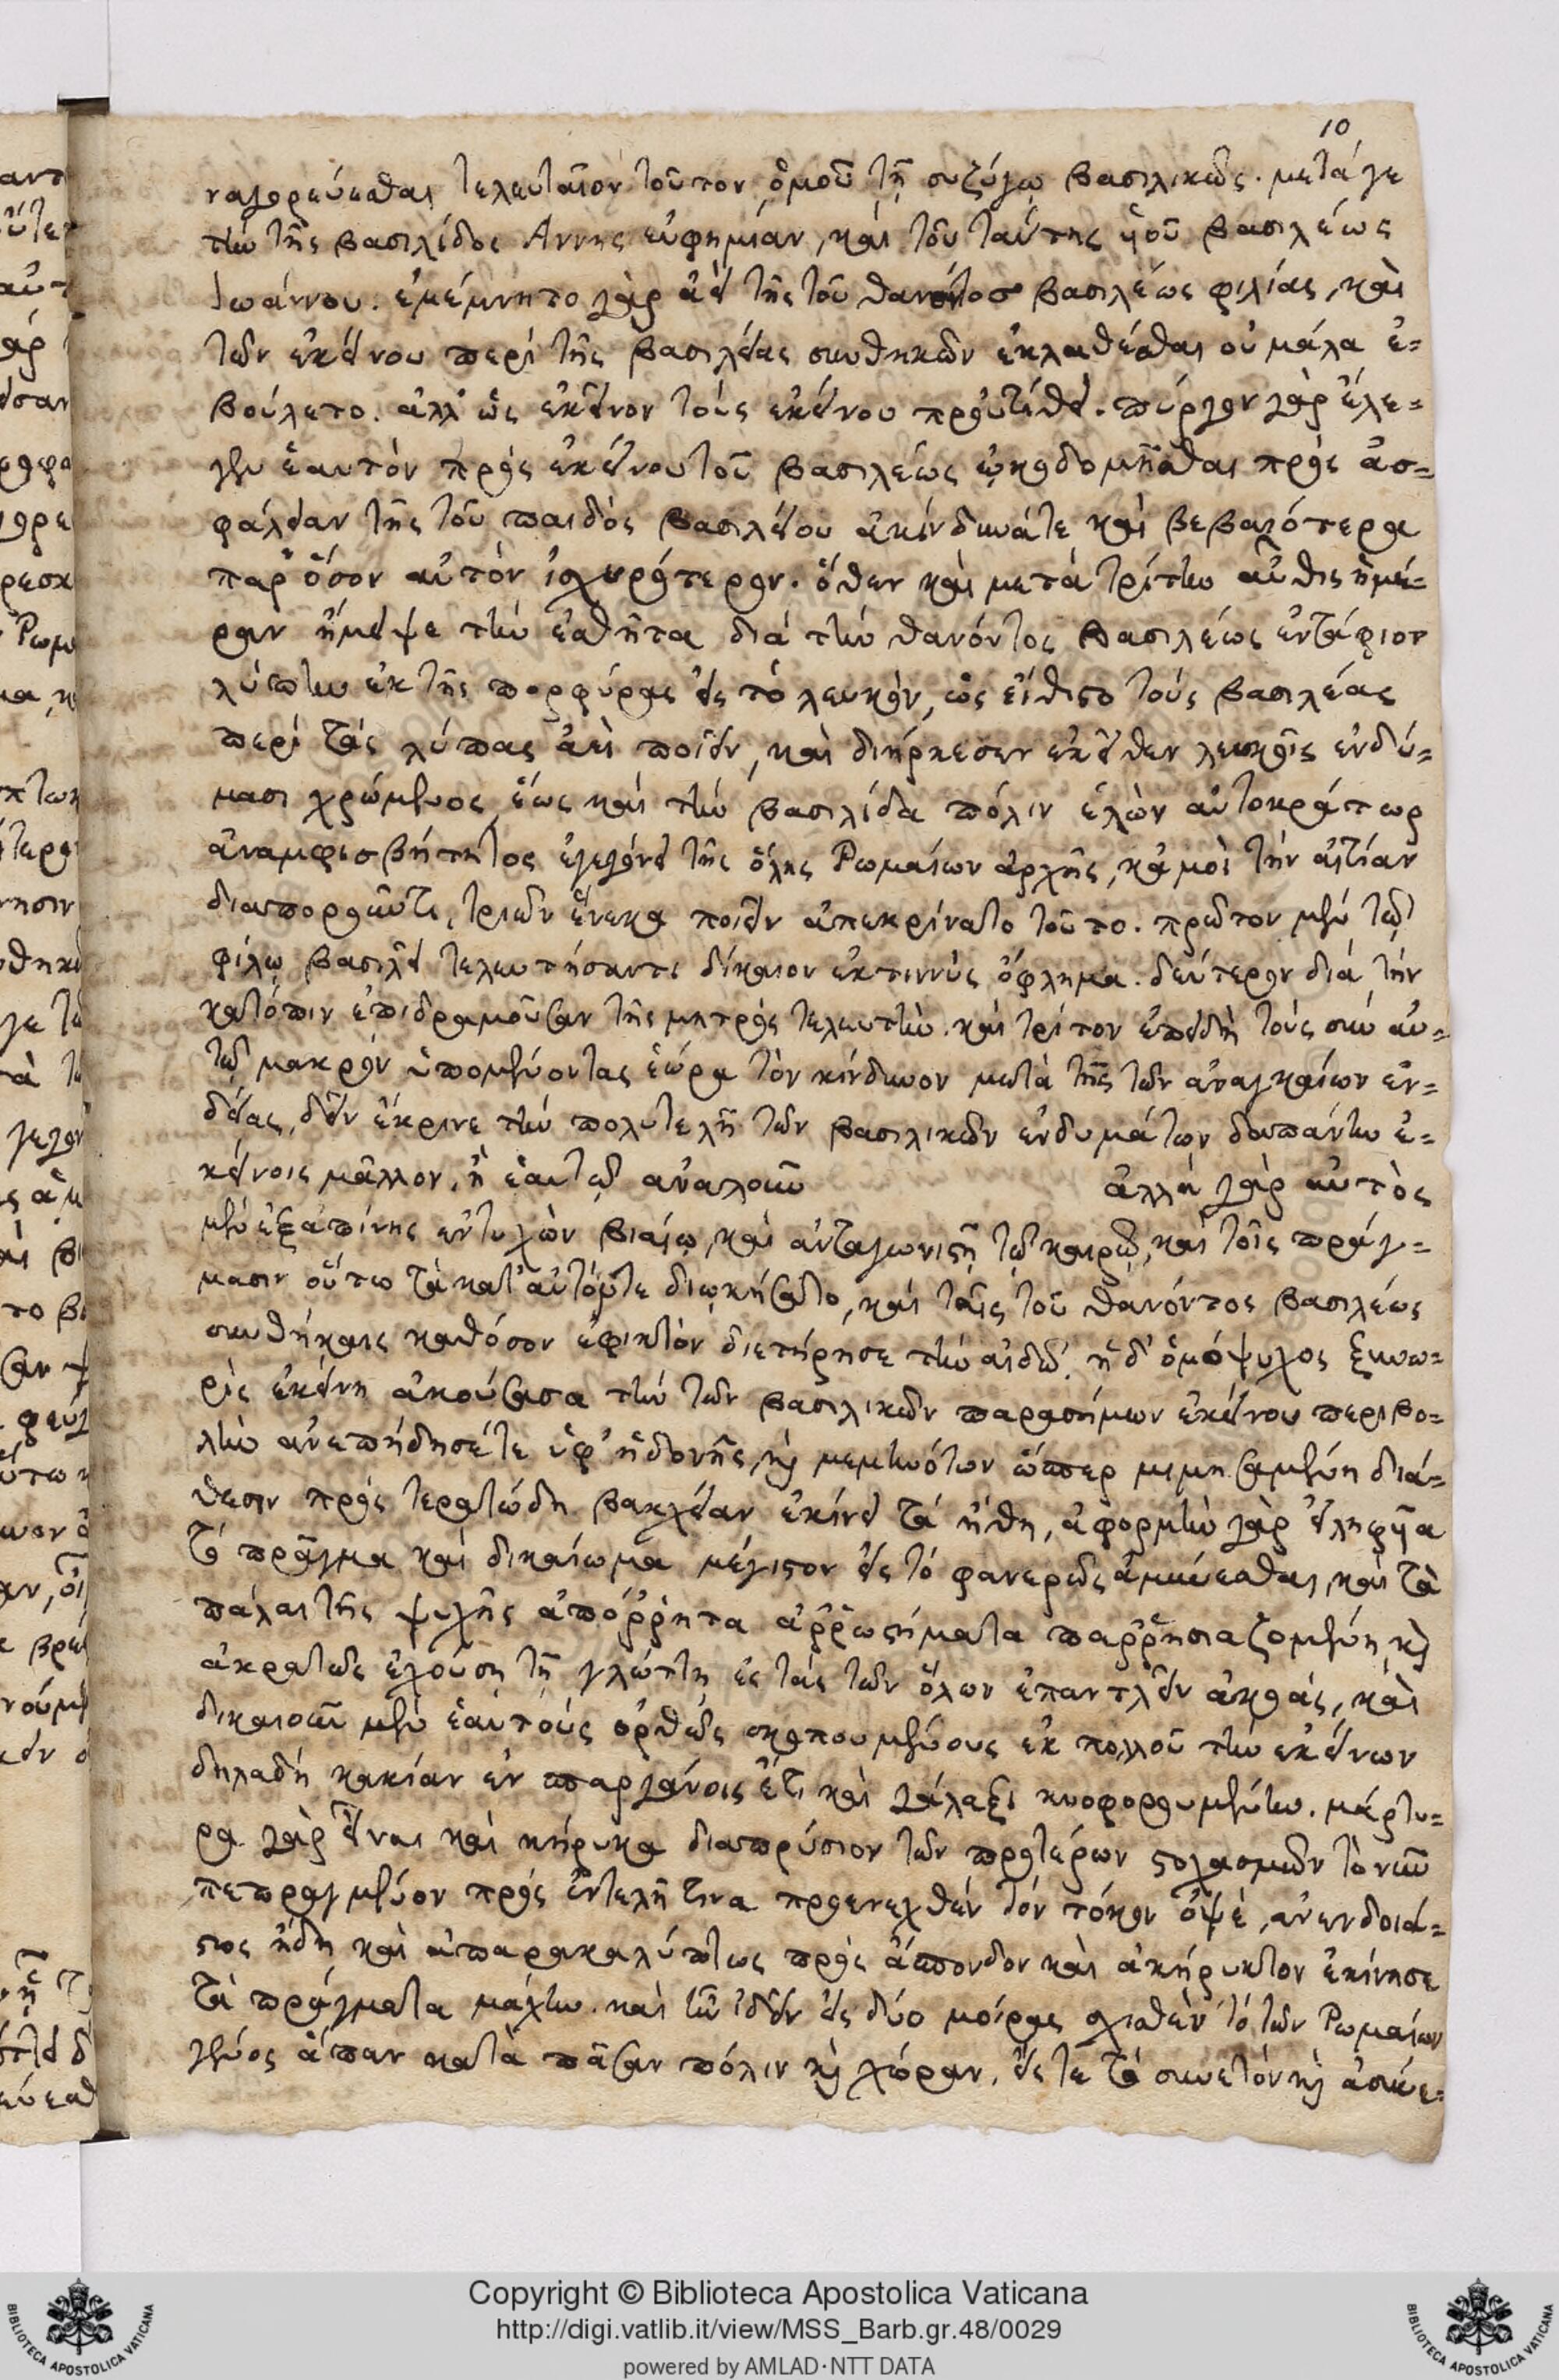 10
ναγορεύεσθαι τελευταῖον τοῦτον ὁμοῦ τῇ συζύγῳ βασιλικῶς. μετά γε
τὴν τῆς βασιλίδος Ἄννης εὐφημίαν, καὶ τοῦ ταύτης υἱοῦ βασιλέως
Ἰωάννου. ἐμέμνητο γὰρ ἀεὶ τῆς τοῦ θανόντος βασιλέως φιλίας, καὶ
τῶν ἐκείνου περὶ τῆς βασιλείας συνθηκῶν ἐκλαθέσθαι οὐ μάλα ἐ-
βούλετο. ἀλλ' ὡς ἐκεῖνον τοὺς ἐκείνου προὐτίθει. πύργον γὰρ ἔλε-
γεν ἑαυτὸν πρὸς ἐκείνου τοῦ βασιλέως ᾠκοδομῆσθαι πρὸς ἀσ-
φάλειαν τῆς τοῦ παιδὸς βασιλείου ἀκίνδυνά τε καὶ βεβαιότερα
παρ' ὅσον αὐτὸν ἰσχυρότερον. ὅθεν καὶ μετὰ τρίτην αὖθις ἡμέ-
ραν ἤμειψε τὴν ἐσθῆτα διὰ τὴν θανόντος βασιλέως ἐντάφιον
λύπην ἐκ τῆς πορφύρας εἰς τὸ λευκὸν, ὡς εἴθιστο τοὺς βασιλέας
περὶ τὰς λύπας ἀεὶ ποιεῖν, καὶ διήρκεσεν ἐκεῖθεν λευκοῖς ἐνδύ-
μασι χρώμενος, ἕως καὶ τὴν βασιλίδα πόλιν ἑλὼν αὐτοκράτωρ
ἀναμφισβήτητος ἐγεγόνει τῆς ὅλης Ῥωμαίων ἀρχῆς, κἀμοὶ τὴν αἰτίαν
διαποροῦντι, τριῶν ἕνεκα ποιεῖν ἀπεκρίνατο τοῦτο. πρῶτον μὲν τῷ
φίλῳ βασιλεῖ τελευτήσαντι δίκαιον ἐκτιννὺς ὄφλημα. δεύτερον διὰ τὴν
κατόπιν ἐπιδραμοῦσαν τῆς μητρὸς τελευτὴν. καὶ τρίτον ἐπειδὴ τοὺς σὺν αὐ-
τῷ μακρὸν ὑπομένοντας ἑώρα τὸν κίνδυνον μετὰ τῆς τῶν ἀναγκαίων ἐν-
δείας, δεῖν ἔκρινε τὴν πολυτελῆ τῶν βασιλικῶν ἐνδυμάτων δαπάνην ἐ-
κείνοις μᾶλλον, ἢ ἑαυτῷ ἀναλοῦν ἀλλὰ γὰρ αὐτὸς
μὲν ἐξαπίνης ἐντυχὼν βιαίῳ, καὶ ἀνταγωνιστῇ τῷ καιρῷ, καὶ τοῖς πράγ-
μασιν οὕτω τὰ κατ' αὐτόν τε διῳκήσατο, καὶ ταῖς τοῦ θανόντος βασιλέως
συνθήκαις καθόσον ἐφικτὸν διετήρησε τὴν αἰδῶ. ἡ δ' ὁμόψυχος ξυνω-
ρὶς ἐκείνη ἀκούσασα τὴν τῶν βασιλικῶν παρασήμων ἐκείνου περιβο-
λὴν ἀνεπήδησέ τε ὑφ' ἡδονῆς, καὶ μεμηνότων ὥσπερ μιμησαμένη διά-
θεσιν πρὸς τερατώδη βακχείαν ἐκίνει τὰ ἤθη, ἀφορμὴν γὰρ εἰληφυῖα
τὸ πρᾶγμα καὶ δικαίωμα μέγιστον εἰς τὸ φανερῶς ἀμύνεσθαι, καὶ τὰ
πάλαι τῆς ψυχῆς ἀπόῤῥητα ἀῤῥωστήματα παῤῥησιαζομένη, καὶ
ἀκρατῶς ἐχούσῃ τῇ γλώττῃ ἐς τὰς τῶν ὅλων ἐπαντλεῖν ἀκοὰς, καὶ
δικαιοῦν μὲν ἑαυτοὺς ὀρθῶς σκοπουμένους ἐκ πολλοῦ τὴν ἐκείνων
δηλαδὴ κακίαν ἐν σπαργάνοις ἔτι καὶ γάλαξι κυοφορουμένην. μάρτυ-
ρα γὰρ εἶναι καὶ κήρυκα διαπρύσιον τῶν προτέρων στοχασμῶν τὸ νῦν
πεπραγμένον πρὸς ἐντελῆ τινα προενεχθὲν τὸν τόκον ὀψὲ, ἀνενδοιά-
στως ἤδη καὶ ἀπαρακαλύπτως πρὸς ἄσπονδον καὶ ἀκήρυκτον ἐκίνησε
τὰ πράγματα μάχην. καὶ ἦν ἰδεῖν εἰς δύο μοίρας σχισθὲν τὸ τῶν Ῥωμαίων
γένος ἅπαν κατὰ πᾶσαν πόλιν καὶ χώραν, εἴς τε τὸ συνετὸν καὶ ἀσύνε-
Copyright © Biblioteca Apostolica Vaticana
http://digi.vatlib.it/view/MSS_Barb.gr.48/0029
powered by AMLAD·NTT DATA
BIBLIOTECA APOSTOLICA VATICANA
BIBLIOTECA APOSTOLICA VATICANA